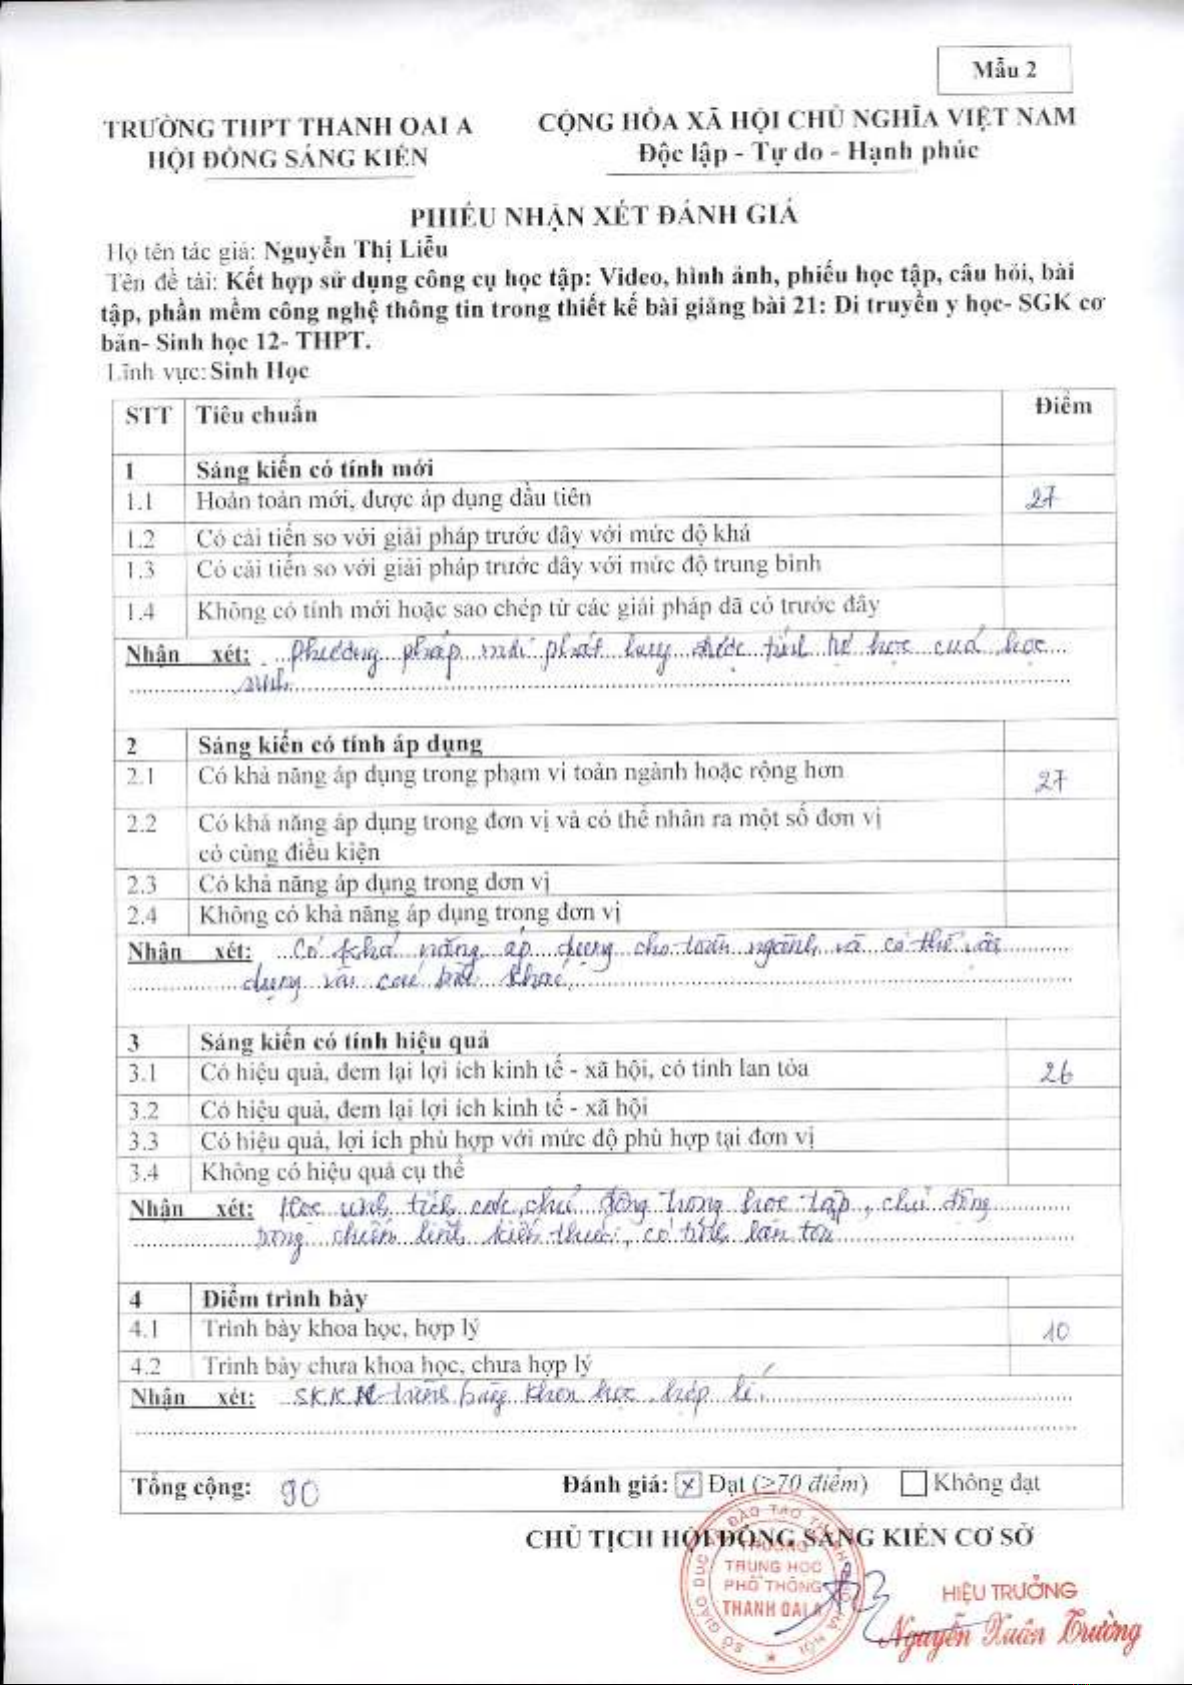 Mẫu 2
TRƯỜNG THPT THANH OAI A
HỘI ĐỒNG SÁNG KIẾN
CỘNG HÒA XÃ HỘI CHỦ NGHĨA VIỆT NAM
Độc lập - Tự do - Hạnh phúc
PHIẾU NHẬN XÉT ĐÁNH GIÁ
Họ tên tác giả: Nguyễn Thị Liễu
Tên đề tài: Kết hợp sử dụng công cụ học tập: Video, hình ảnh, phiếu học tập, câu hỏi, bài
tập, phần mềm công nghệ thông tin trong thiết kế bài giảng bài 21: Di truyền y học- SGK cơ
bản- Sinh học 12- THPT.
Lĩnh vực: Sinh Học
STT Tiêu chuẩn Điểm
1 Sáng kiến có tính mới
1.1 Hoàn toàn mới, được áp dụng đầu tiên 27
1.2 Có cải tiến so với giải pháp trước đây với mức độ khá
1.3 Có cải tiến so với giải pháp trước đây với mức độ trung bình
1.4 Không có tính mới hoặc sao chép từ các giải pháp đã có trước đây
Nhận xét: Phương pháp mới phát huy được tính tự học của học
sinh
2 Sáng kiến có tính áp dụng
2.1 Có khả năng áp dụng trong phạm vi toàn ngành hoặc rộng hơn 27
2.2 Có khả năng áp dụng trong đơn vị và có thể nhân ra một số đơn vị
có cùng điều kiện
2.3 Có khả năng áp dụng trong đơn vị
2.4 Không có khả năng áp dụng trong đơn vị
Nhận xét: Có khả năng áp dụng cho toàn ngành và có thể vận
dụng vào các bài khác.
3 Sáng kiến có tính hiệu quả
3.1 Có hiệu quả, đem lại lợi ích kinh tế - xã hội, có tính lan tỏa 26
3.2 Có hiệu quả, đem lại lợi ích kinh tế - xã hội
3.3 Có hiệu quả, lợi ích phù hợp với mức độ phù hợp tại đơn vị
3.4 Không có hiệu quả cụ thể
Nhận xét: Học sinh tích cực, chủ động trong học tập, chủ động
trong chiếm lĩnh kiến thức, có tính lan tỏa
4 Điểm trình bày
4.1 Trình bày khoa học, hợp lý 10
4.2 Trình bày chưa khoa học, chưa hợp lý
Nhận xét: SKKN trình bày khoa học, hợp lí.
Tổng cộng: 90 Đánh giá: x Đạt (≥70 điểm) Không đạt
CHỦ TỊCH HỘI ĐỒNG SÁNG KIẾN CƠ SỞ
TRƯỜNG
TRUNG HỌC
PHỔ THÔNG
THANH OAI A
SỞ GIÁO DỤC VÀ ĐÀO TẠO THÀNH PHỐ HÀ NỘI
HIỆU TRƯỞNG
Nguyễn Xuân Trường